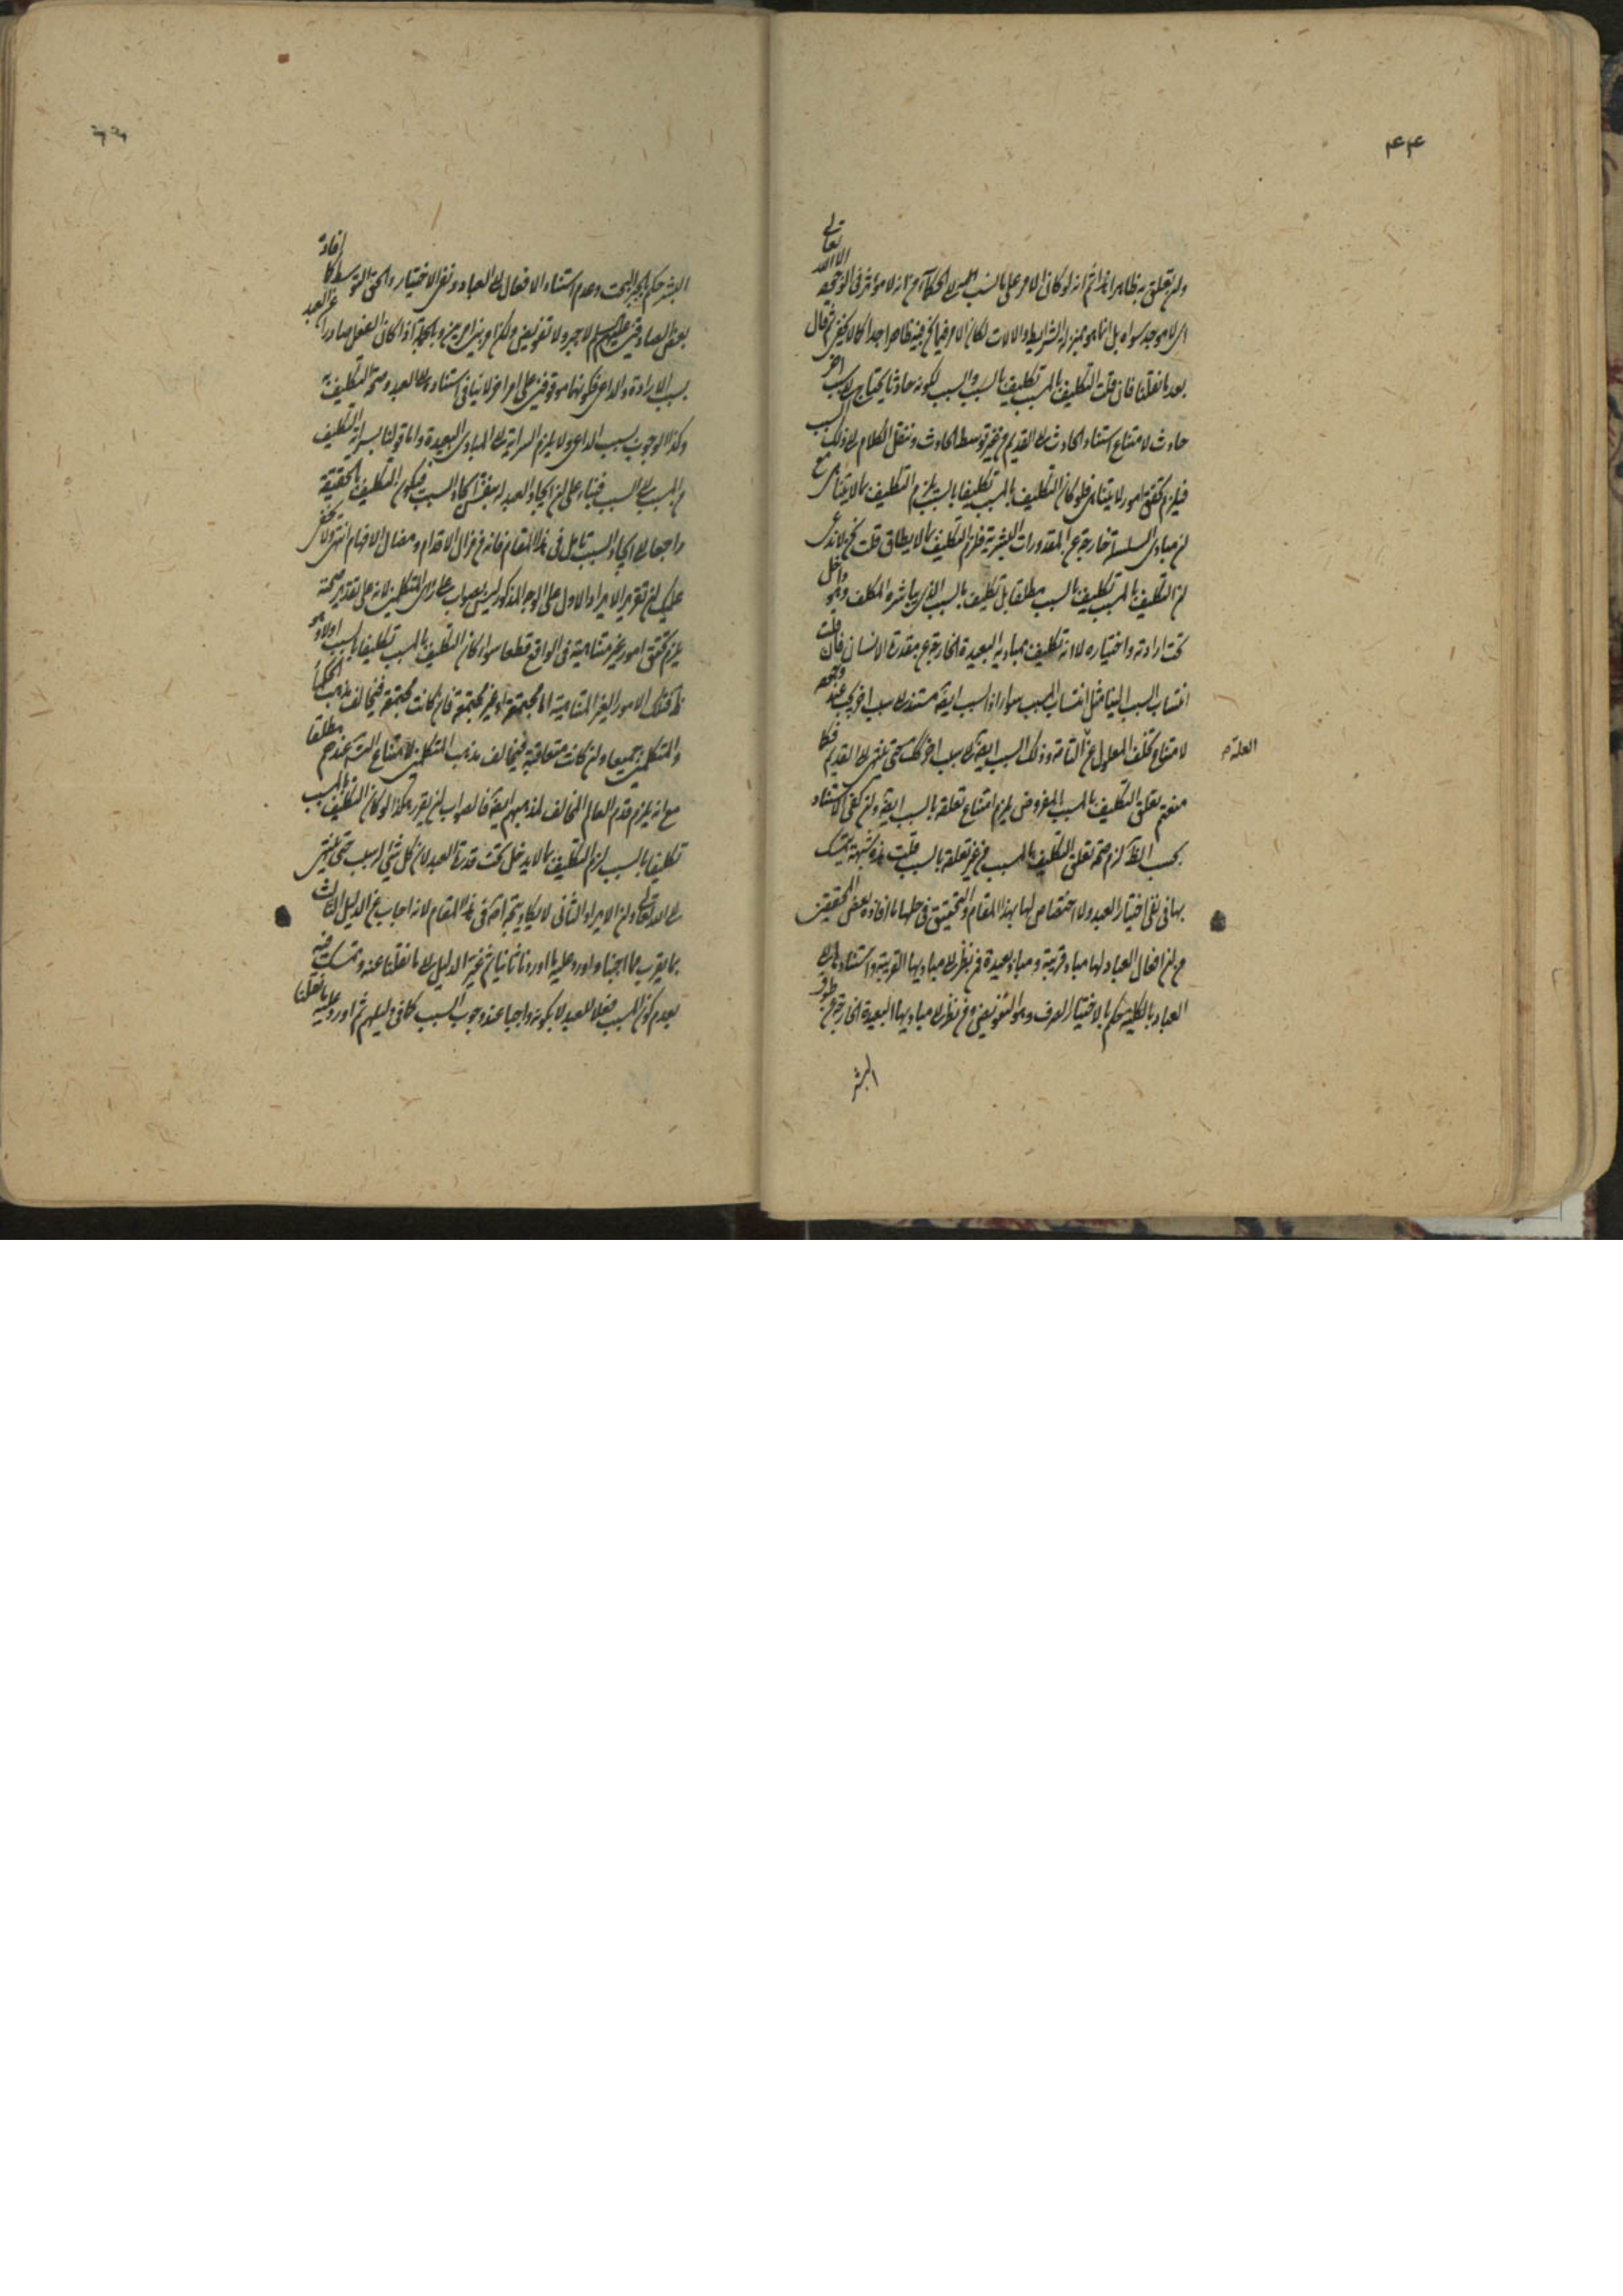 ۴۴
ولم يتعلق به ظاهرا هذا ثم انه لو كان الامر على ما نسب الى الحكماء من انه لا مؤثر فى الوجود الا الله تعالى
اى لا موجد سواه بل ما هو بمنزلة الشرايط والالات لكان الامر فيما نحن فيه ظاهرا جدا كما لا يخفى ثم قال
بعد ما نقلنا فان قلت التكليف بالمسبب تكليف بالسبب والسبب لكونه حادثا يحتاج الى سبب اخر
حادث لامتناع استناد الحادث الى القديم من غير توسط الحادث وننقل الكلام الى ذلك السبب
فيلزم تحقق امور لا يتناهى فلو كان التكليف بالمسبب تكليفا بالسبب يلزم التكليف بما لا يتناهى مع
ان مبادى السلسلة خارجة عن المقدورات البشرية فلزم التكليف بما لا يطاق قلت نحن لا ندعى
ان التكليف بالمسبب تكليف بالسبب مطلقا بل تكليف بالسبب الذى يباشره المكلف وهو داخل
تحت ارادته واختياره لا انه تكليف بمباديه البعيدة الخارجة عن مقدرة الانسان فان قلت
انتساب السبب الينا مثل انتساب المسبب سواء اذ السبب ايضا مستند الى سبب اخر يجب عنده وجوده
لامتناع تخلف المعلول عن التامة وذلك السبب ايضا الى سبب اخر كك حتى ينتهى الى القديم فكما
العلة
منعتم تعلق التكليف بالمسبب المفروض يلزم امتناع تعلقه بالسبب ايضا ولئن كفى الاستناد
بحسب الظ لزم صحة تعلق التكليف بالمسبب من غير تعلقه بالسبب قلت هذه شبهة يتمسك
بها فى نفى اختيار العبد ولا اختصاص لها بهذا المقام والتحقيق فى حلها ما افاده بعض المحققين
من ان افعال العباد لها مباد قريبة ومباد بعيدة فمن نظر الى مباديها القريبة واستنادها الى
العباد بالكلية حكم بالاختيار الصرف وهو التفويض ومن نظر الى مباديها البعيدة الخارجة عن طوق
البشر
البشر حكم بالجبر البحت وعدم استناد الافعال الى العباد ونفى الاختيار والحق التوسط كما افاده
بعض الصادقين عليهم السلم لا جبر ولا تفويض ولكن امر بين امرين وبالجملة اذا كان الفعل صادرا عن العبد
بسبب الارادة والداعى فكونهما موقوفين على امر اخر لا ينافى استناده الى العبد وصحة التكليف به
وكذا الوجوب بسبب الداعى ولا يلزم السراية الى المبادى البعيدة واما قولنا بسراية التكليف
من المسبب الى السبب فبناء على ان ايجاد العبد له بنفس ايجاد السبب فيكون التكليف بالحقيقة
راجعا الى ايجاد السبب تامل فى هذا المقام فانه من مزال الاقدام ومضال الافهام انتهى ولا يخفى
عليك ان تقرير الايراد الاول على الوجه المذكور ليس بصواب على راى المتكلمين لانه على تقدير صحته
يلزم تحقق امور غير متناهية فى الواقع قطعا سواء كان التكليف بالمسبب تكليفا بالسبب اولا وهو
ظ فتلك الامور الغير المتناهية اما مجتمعة او غير مجتمعة فان كانت مجتمعة فيخالف مذهب الحكماء
والمتكلمين جميعا وان كانت متعاقبة فيخالف مذهب المتكلمين لامتناع التس عندهم مطلقا
مع انه يلزم قدم العالم المخالف لمذهبهم ايضا فالصواب ان يقرر هكذا لو كان التكليف بالمسبب
تكليفا بالسبب لزم التكليف بما لا يدخل تحت قدرة العبد لان كل شئ له سبب حتى ينتهى
الى الله تعالى وان الايراد الثانى لا يكاد يتجه اصلا فى هذا المقام لانه اجاب عن الدليل الثالث
بما يقرب مما اجبنا واورد عليه ما اوردنا ثانيا ثم غير الدليل الى ما نقلنا عنه وتمسك فيه
بعدم كون المسبب فعلا للعبد لا بكونه واجبا عند وجوب السبب كما فى دليلهم ثم اورد عليه ما نقلنا